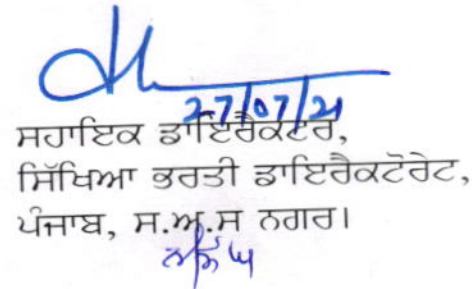 27/07/21
ਸਹਾਇਕ ਡਾਇਰੈਕਟਰ,
ਸਿੱਖਿਆ ਭਰਤੀ ਡਾਇਰੈਕਟੋਰੇਟ,
ਪੰਜਾਬ, ਸ.ਅ.ਸ ਨਗਰ।